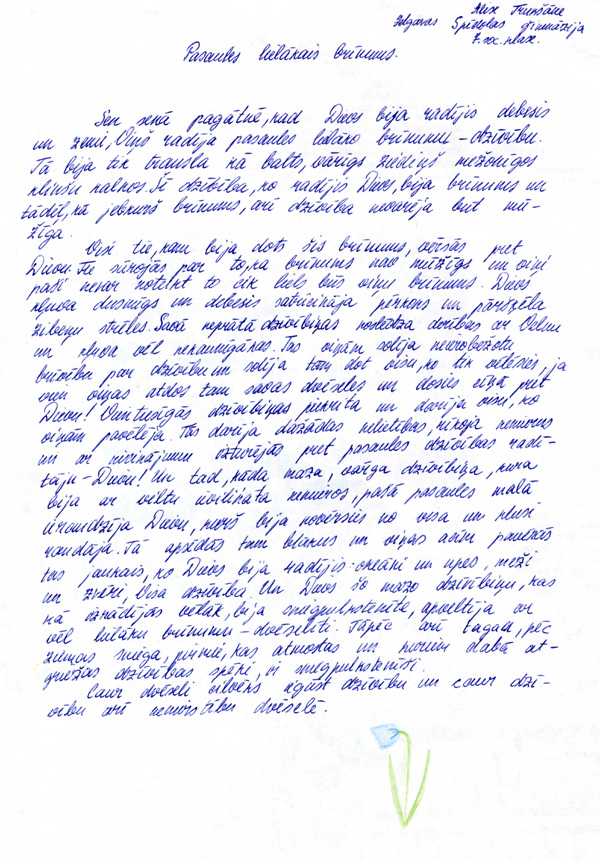 Alise Trumšāne
Jelgavas Spīdolas ģimnāzija
7.soc.klase.
Pasaules lielākais brīnums.
Sen senā pagātnē, kad Dievs bija radījis debesis
un zemi, Viņš radīja pasaules lielāko brīnumu – dzīvību.
Tā bija tik trausla kā balts, vārīgs ziediņš mežonīgos
klinšu kalnos. Šī dzīvība, ko radījis Dievs, bija brīnums un
tādēļ, kā jebkurš brīnums, arī dzīvība nevarēja būt mū-
žīga.
Visi tie, kam bija dots šis brīnums, vērsās pret
Dievu. Tie sūrojās par to, ka brīnums nav mūžīgs un viņi
paši nevar noteikt to cik liels būs viņu brīnums. Dievs
kļuva dusmīgs un debesis satricināja pērkons un pāršķēla
zibeņu strēles. Savā neprātā dzīvībiņas noslēdza derības ar Velnu
un kļuva vēl nekaunīgākas. Tas viņām solīja neierobežotu
brīvību par dzīvību un solīja tam dot visu, ko tik vēlēsies, ja
vien viņas atdos tam savas dvēseles un dosies cīņā pret
Dievu! Vientiesīgās dzīvībiņas piekrita un darīja visu, ko
viņām pavēlēja. Tās darīja dažādas nelietības, rīkoja nemierus
un ar nicinājumu izturējās pret pasaules dzīvības radī-
tāju – Dievu! Un tad, kāda maza, vārīga dzīvībiņa, kura
bija ar viltu ievilināta nemieros, pašā pasaules malā
ieraudzīja Dievu, kurš bija novērsies no visa un klusi
raudāja. Tā apsēdās tam blakus un viņas acīm pavērās
tas jaukais, ko Dievs bija radījis: okeāni un upes, meži
un zvēri, Visa dzīvība. Un Dievs šo mazo dzīvībiņu, kas
kā izrādījās vēlāk, bija sniegpulkstenīte, apveltīja ar
vēl lielāku brīnumu – dvēselīti. Tāpēc arī tagad, pēc
ziemas miega, pirmie, kas atmodas un kuriem dabā at-
griežas dzīvības spēki, ir sniegpulkstenīši.
Caur dvēseli cilvēks iegūst dzīvību un caur dzī-
vību arī nemirstību dvēselē.